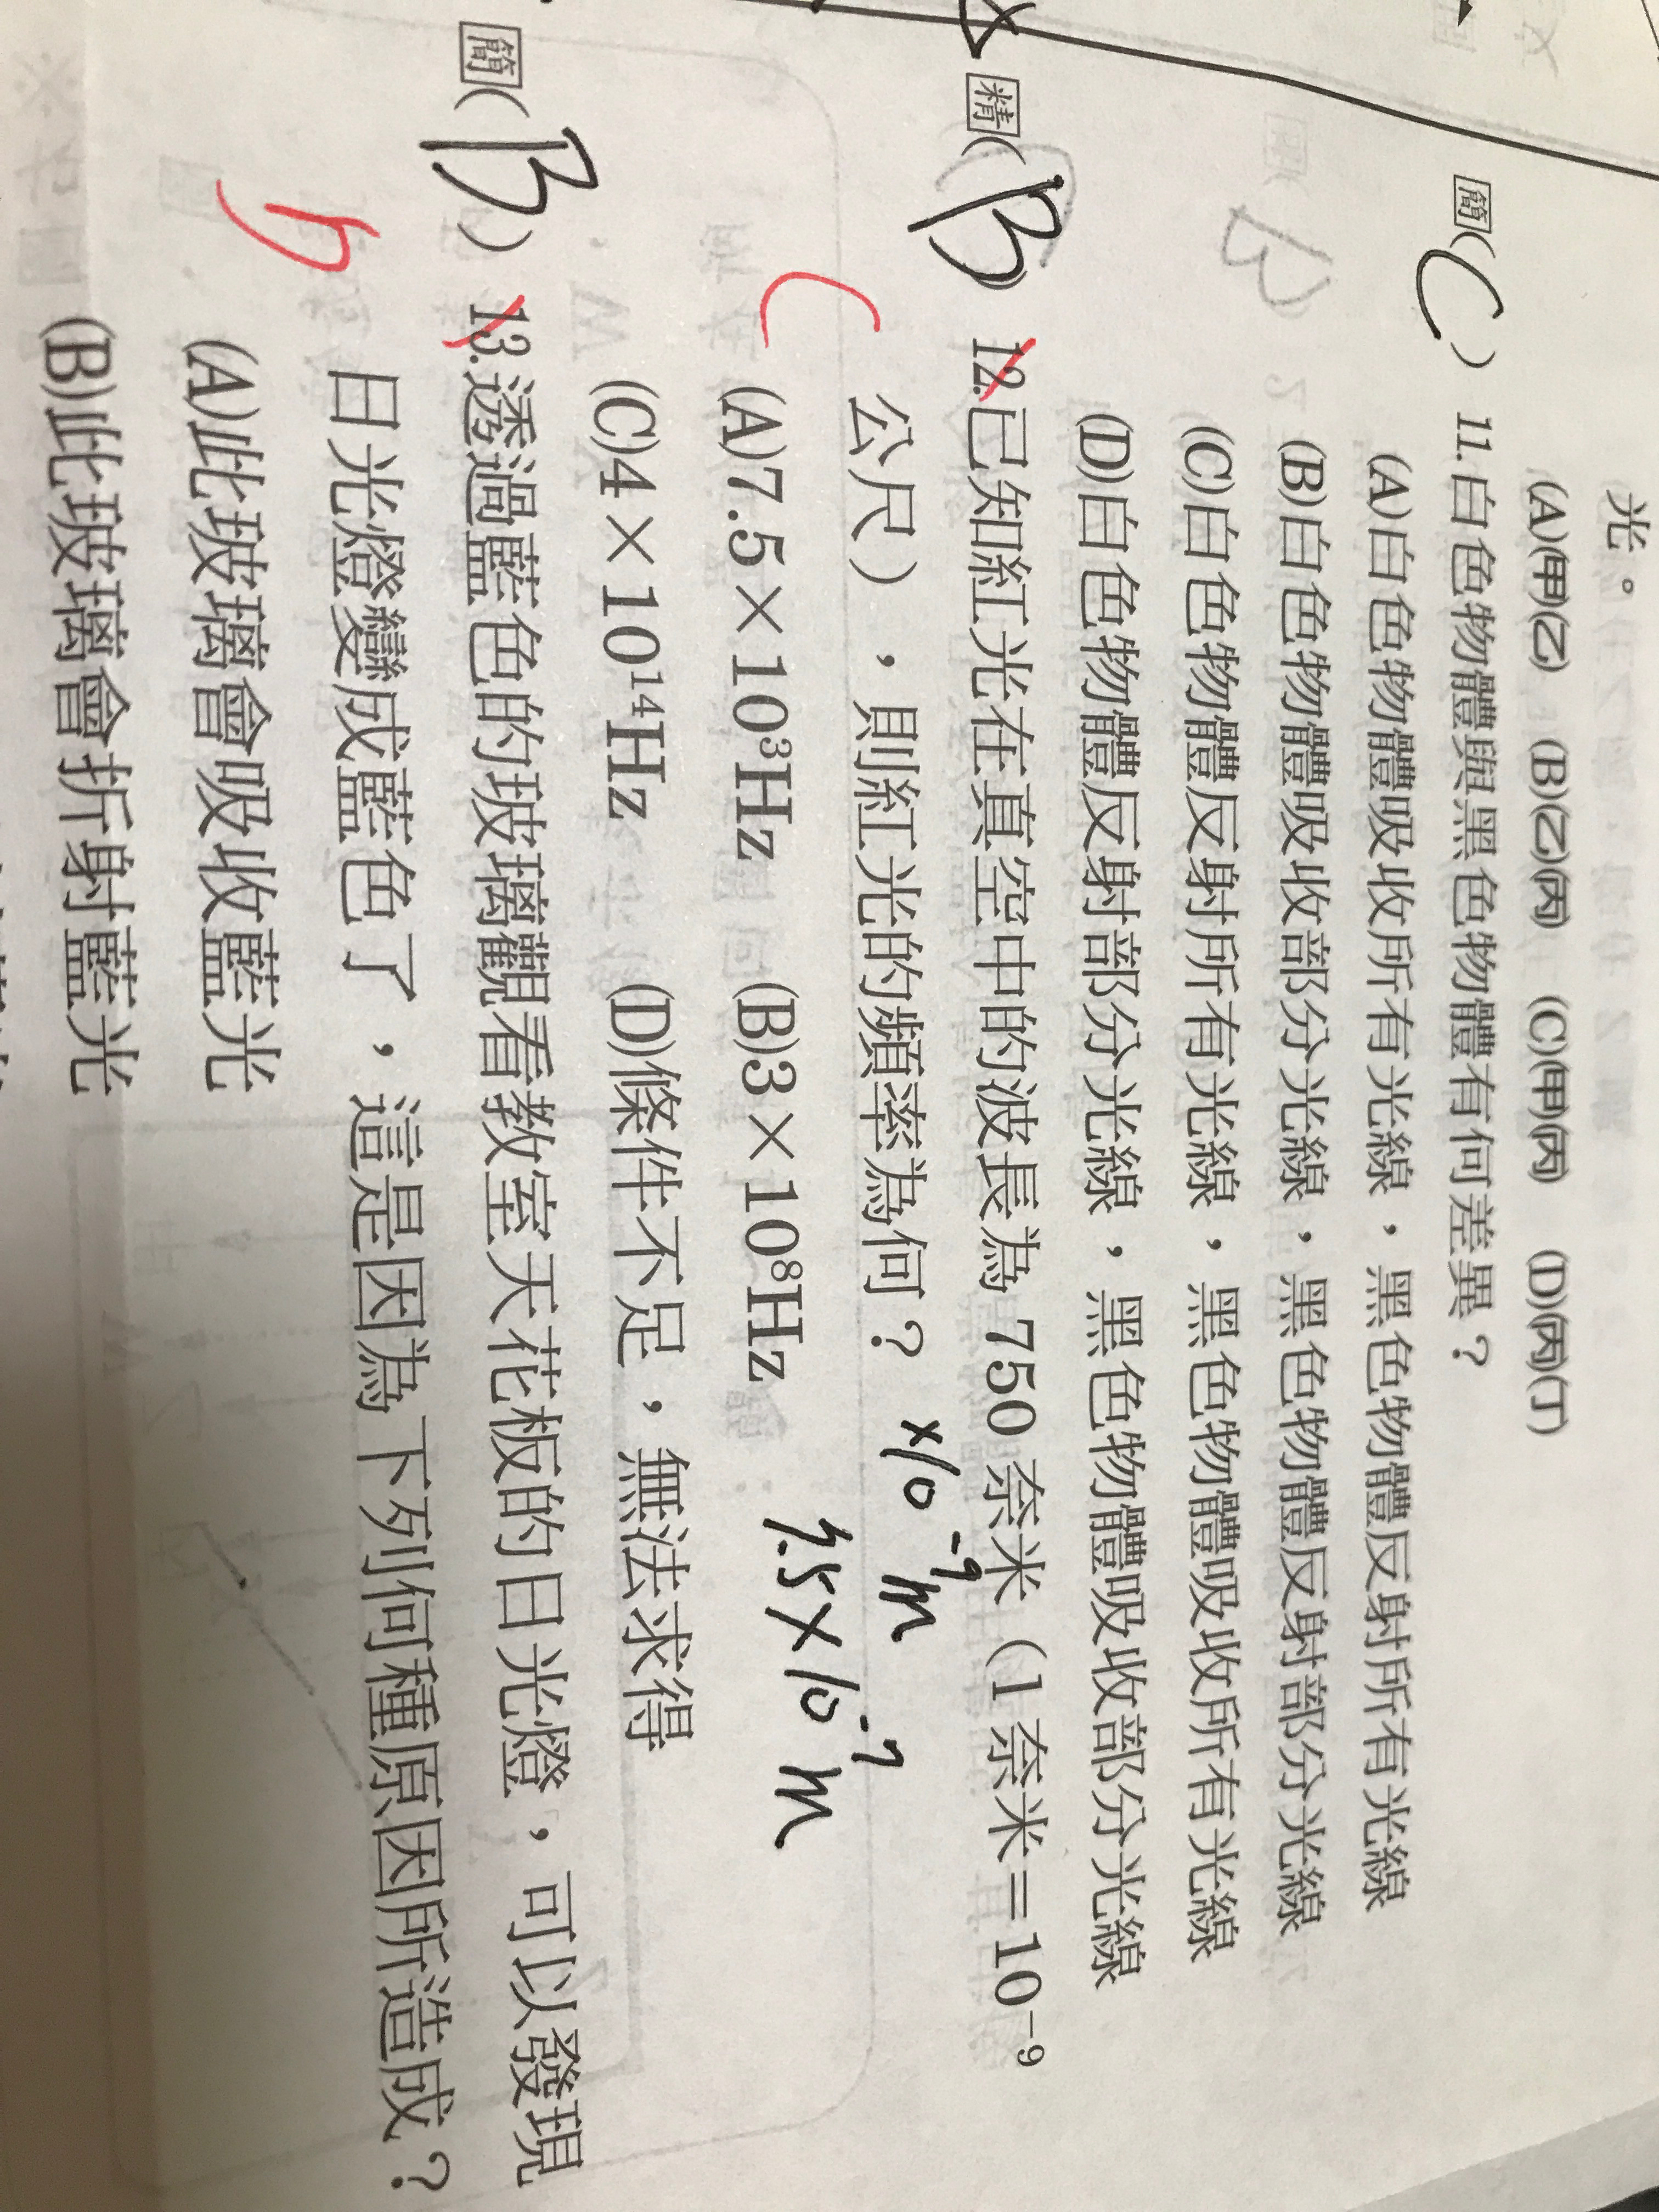 光。
(A)(甲)(乙) (B)(乙)(丙) (C)(甲)(丙) (D)(丙)(丁)
簡( C ) 11.白色物體與黑色物體有何差異？
(A)白色物體吸收所有光線，黑色物體反射所有光線
(B)白色物體吸收部分光線，黑色物體反射部分光線
(C)白色物體反射所有光線，黑色物體吸收所有光線
(D)白色物體反射部分光線，黑色物體吸收部分光線
精( B ) 12.已知紅光在真空中的波長為 750 奈米（1 奈米＝10⁻⁹
公尺），則紅光的頻率為何？ ×10⁻⁹ m
C
(A)7.5×10³Hz (B)3×10⁸Hz 7.5×10⁻⁷ m
(C)4×10¹⁴Hz (D)條件不足，無法求得
簡( B ) 13.透過藍色的玻璃觀看教室天花板的日光燈，可以發現
日光燈變成藍色了，這是因為下列何種原因所造成？
(A)此玻璃會吸收藍光
(B)此玻璃會折射藍光